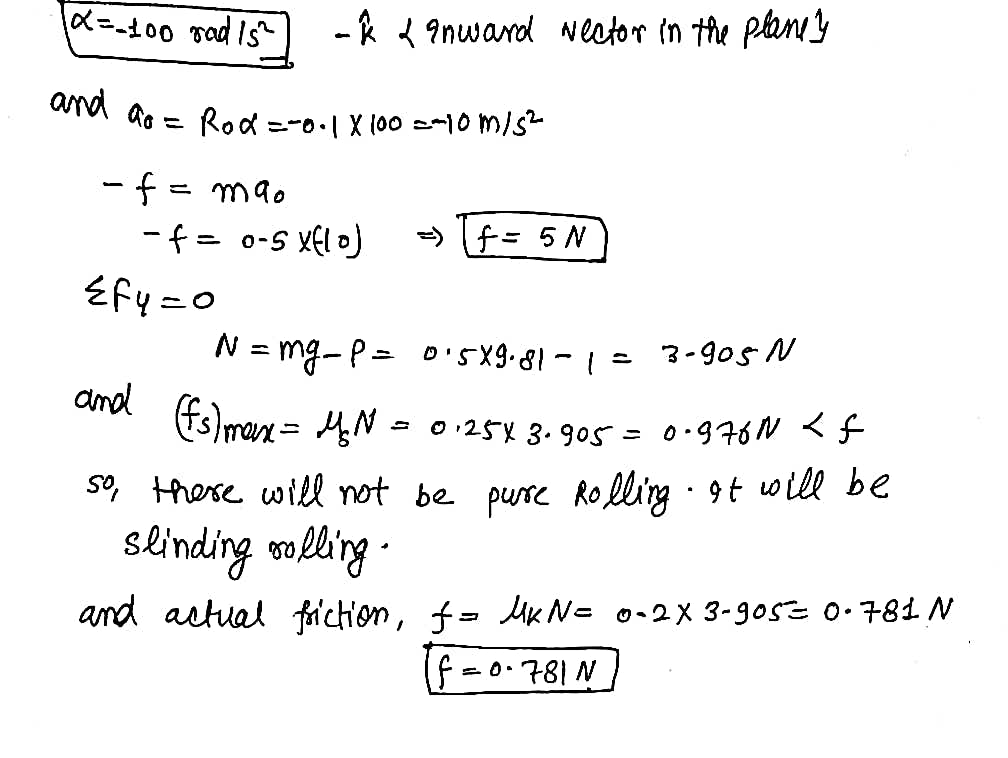 α=-100 rad/s² - k̂ { inward vector in the plane}
and a₀ = R₀α =-0.1 X 100 =-10 m/s²
- f = ma₀
- f = 0.5 X(-10) ⇒ f = 5 N
ΣFy = 0
N = mg - P = 0.5X9.81 - 1 = 3.905 N
and (fs)max = μsN = 0.25X 3.905 = 0.976 N < f
so, there will not be pure Rolling. It will be
slinding rolling.
and actual friction, f = μKN = 0.2 X 3.905 = 0.781 N
f = 0.781 N